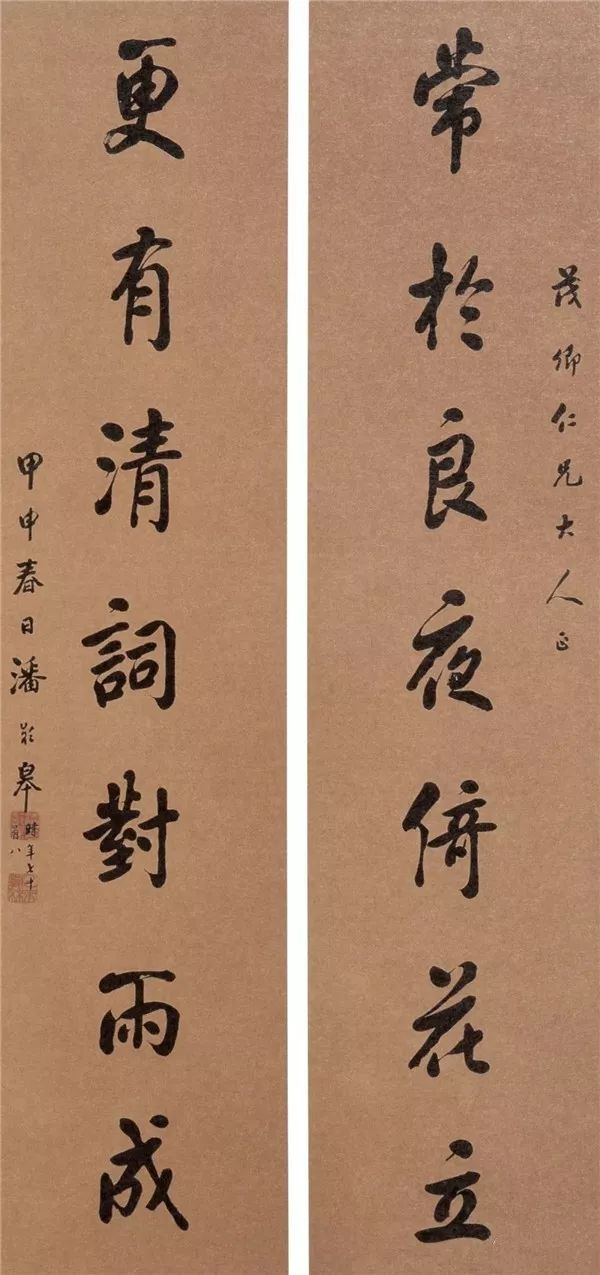 茂卿仁兄大人正
常於良夜倚花立
更有清詞對雨成
甲申春日潘齡皋
時年七十
有八